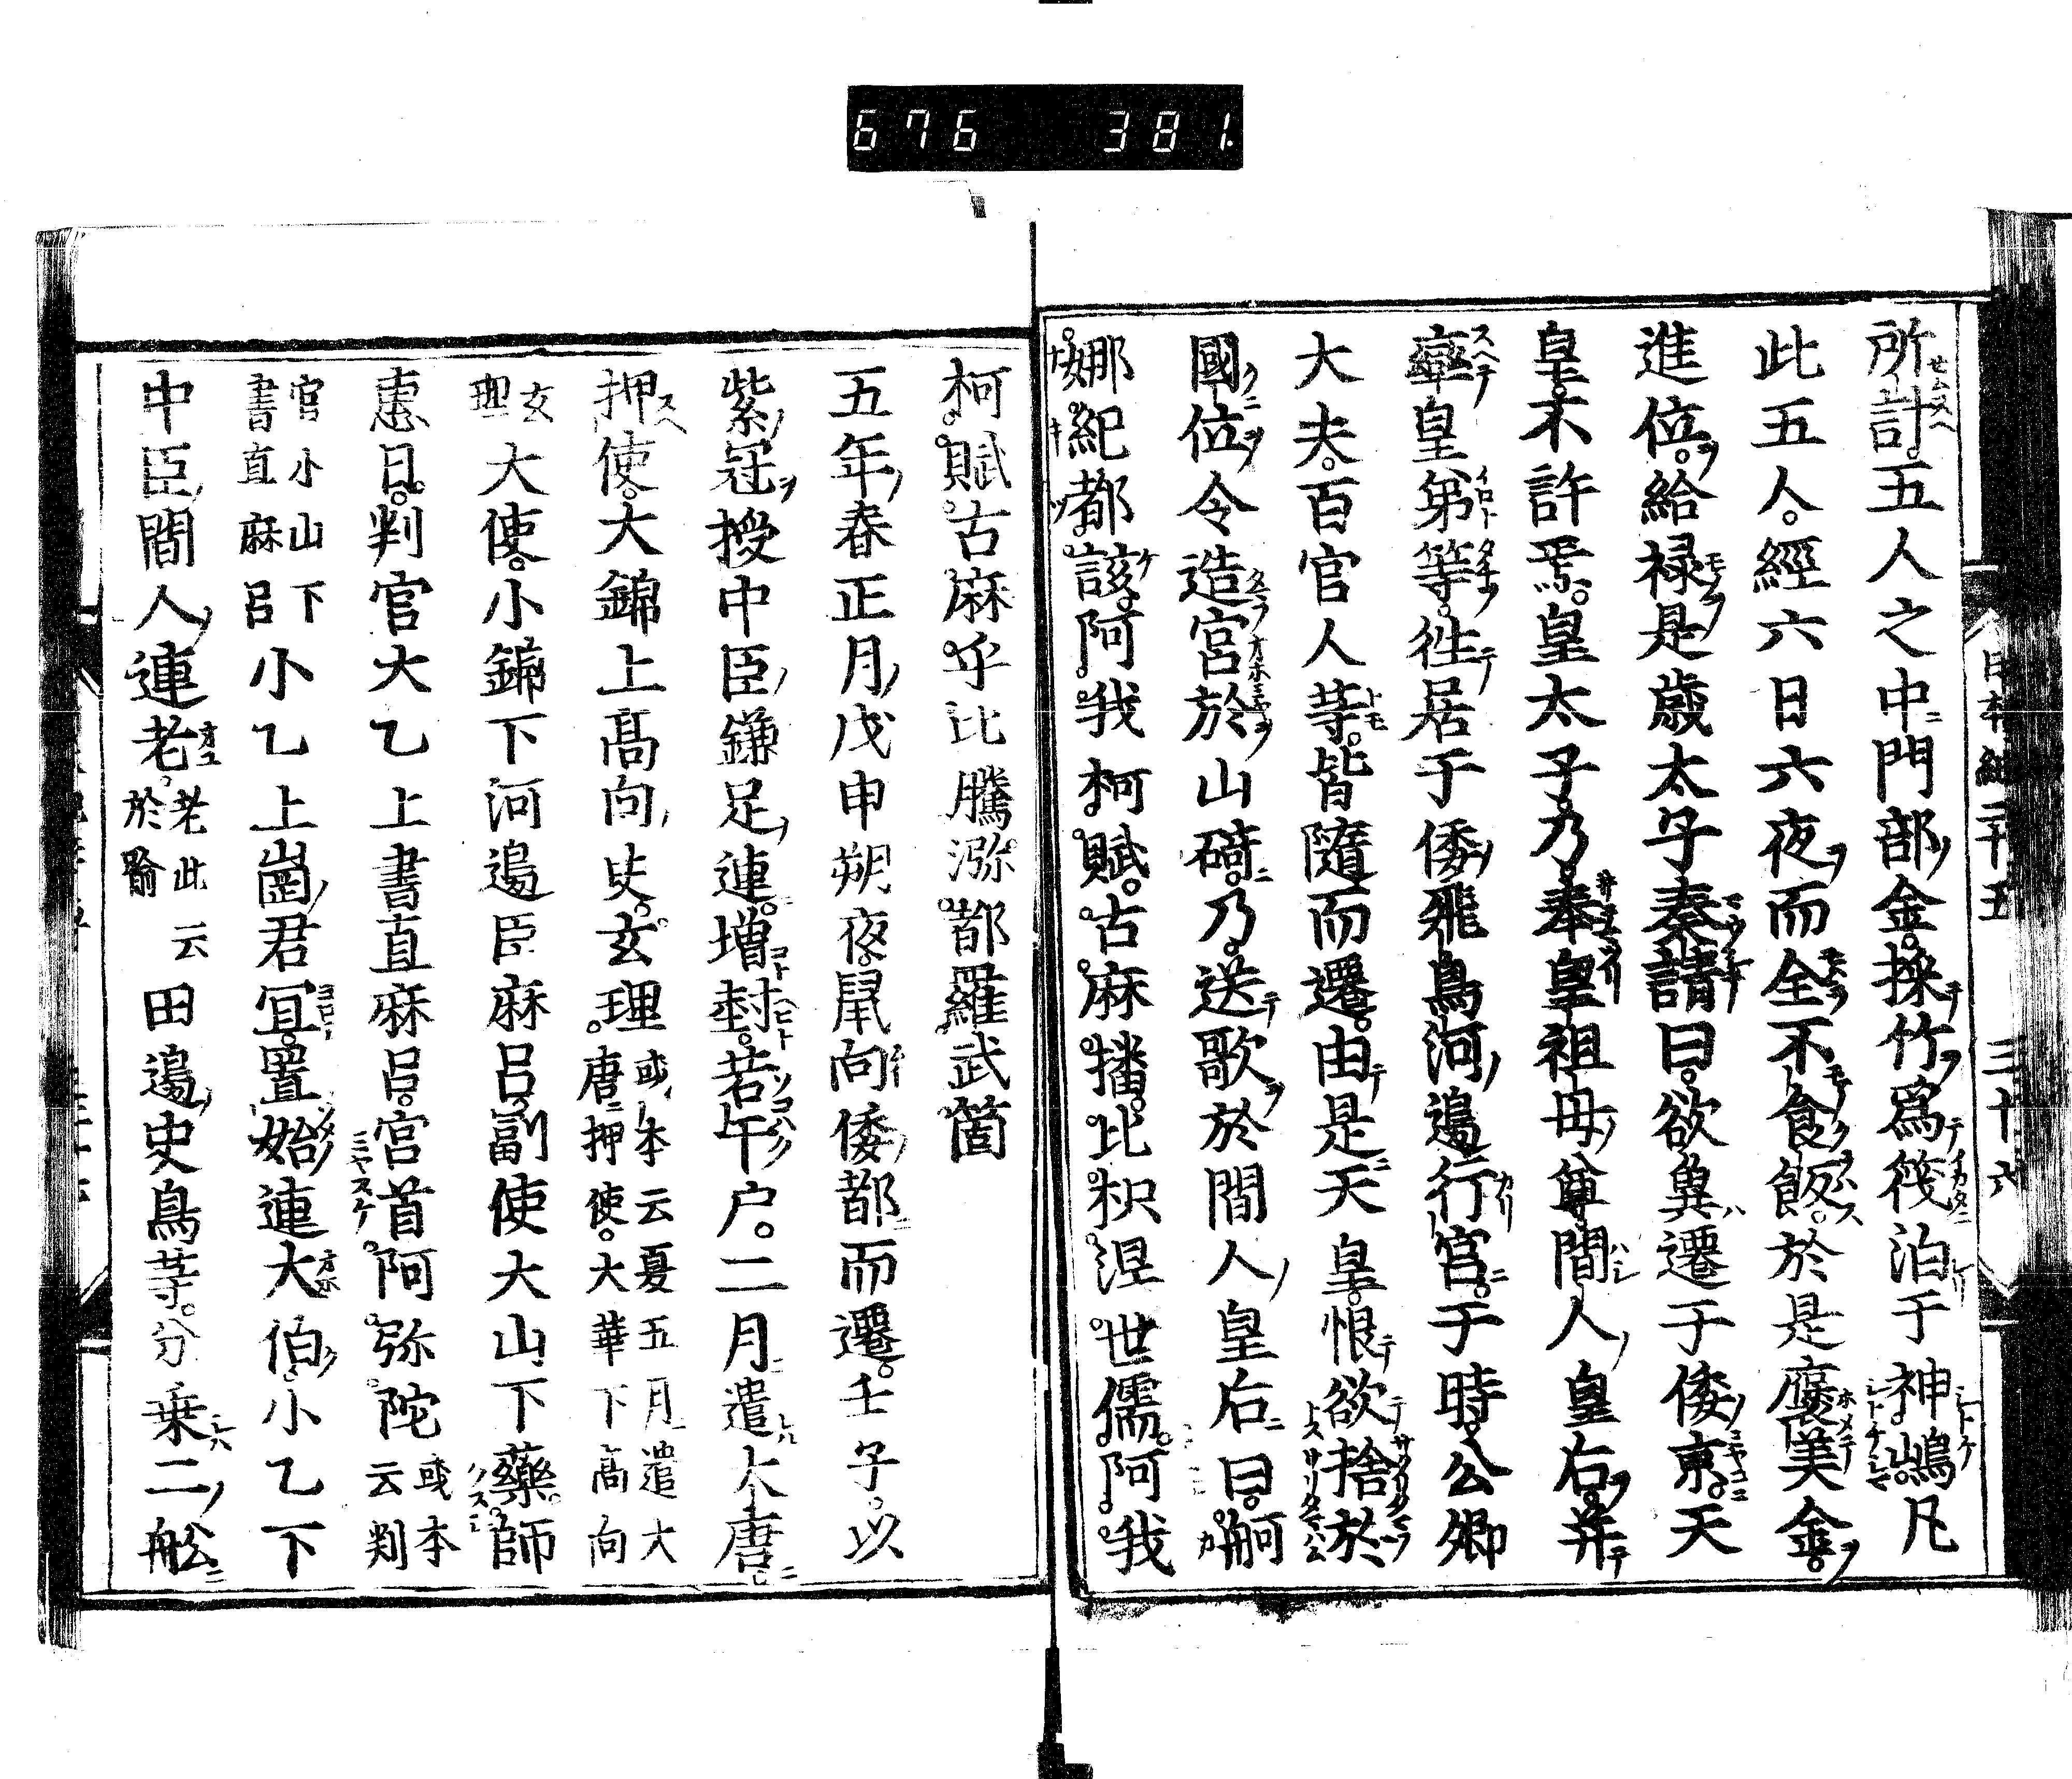 676 381
日本紀二十五 三十六
所計五人之中門部金採竹爲筏泊于神嶋凡
此五人經六日六夜而全不食飯於是褒美金
進位給禄是歳太子奏請曰欲冀遷于倭京天
皇不許焉皇太子乃奉皇祖母尊間人皇后并
率皇弟等徃居于倭飛鳥河邉行宮于時公卿
大夫百官人等皆隨而遷由是天皇恨欲捨於
國位令造宮於山碕乃送歌於間人皇后曰舸
娜紀都該阿我柯賦古麻播比枳涅世儒阿我
柯賦古麻乎比騰瀰都羅武箇
五年春正月戊申朔夜鼠向倭都而遷壬子以
紫冠授中臣鎌足連増封若干戸二月遣大唐
押使大錦上高向史玄理或本云夏五月遣大唐押使大華下高向
玄理大使小錦下河邉臣麻呂副使大山下藥師
惠日判官大乙上書直麻呂宮首阿弥陀或本云判
官小山下書直麻呂小乙上崗君冝置始連大伯小乙下
中臣間人連老老此云於喩田邉史鳥等分乗二舩